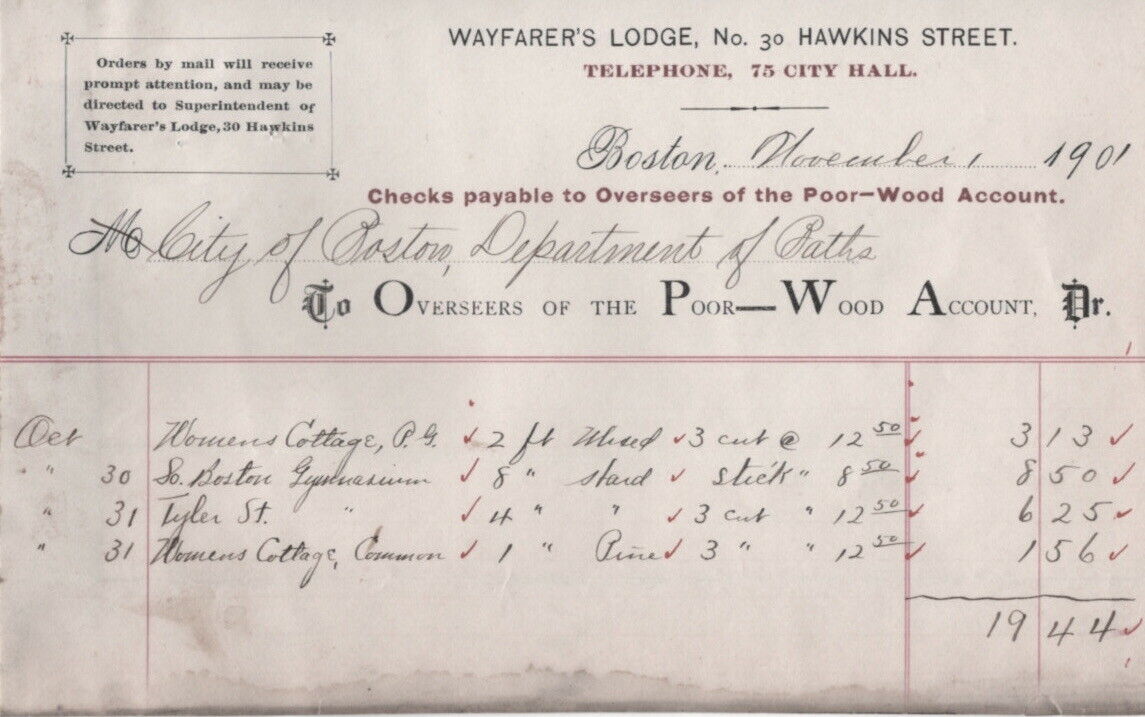 WAYFARER'S LODGE, No. 30 HAWKINS STREET.
TELEPHONE, 75 CITY HALL.
Orders by mail will receive
prompt attention, and may be
directed to Superintendent of
Wayfarer's Lodge, 30 Hawkins
Street.
Boston, November 1 1901
Checks payable to Overseers of the Poor—Wood Account.
M City of Boston, Department of Baths
To OVERSEERS OF THE POOR—WOOD ACCOUNT, Dr.
Oct Womens Cottage, P. G. 2 ft Mixed 3 cut @ 12 50 3 13
" 30 So. Boston Gymnasium 8 " Hard stick " 8 50 8 50
" 31 Tyler St. " 4 " " 3 cut " 12 50 6 25
" 31 Womens Cottage, Common 1 " Pine 3 " " 12 50 1 56
19 44